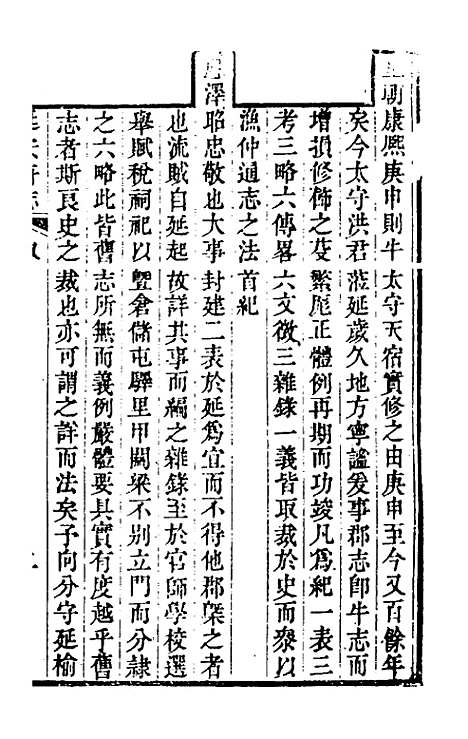 朝康熙庚申則牛太守天宿實修之由庚申至今又百餘年
矣今太守洪君蒞延歲久地方寧謐爰事郡志卽牛志而
增損修飾之芟繁厖正體例再期而功竣凡為紀一表三
考三略六傳畧六文徵三雜錄一義皆取裁於史而衆以
漁仲通志之法首紀
澤昭忠敬也大事封建二表於延為宜而不得他郡槩之者
也流賊自延起故詳其事而編之雜錄至於官師學校選
舉賦稅祠祀以曁倉儲屯驛里甲關梁不别立門而分隷
之六略此皆舊志所無而義例嚴體要具實有度越乎舊
志者斯良史之裁也亦可謂之詳而法矣予向分守延榆